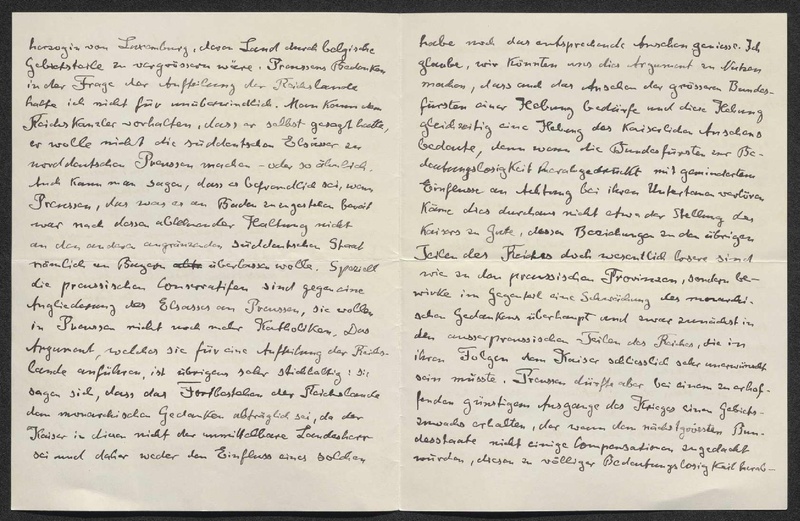 herzogin von Luxemburg, deren Land durch belgische
Gebietsteile zu vergrössern wäre. Preussens Bedenken
in der Frage der Aufteilung der Reichslande
halte ich nicht für unüberwindlich. Man kann dem
Reichskanzler vorhalten, dass er selbst gesagt hatte,
er wolle nicht die süddeutschen Elsässer zu
norddeutschen Preussen machen - oder so ähnlich.
Auch kann man sagen, dass es befremdlich sei, wenn
Preussen, das was es an Baden zuzugestehen bereit
war nach dessen ablehnender Haltung nicht
an den anderen angrenzenden süddeutschen Staat
nämlich an Bayern überlassen wolle. Speziell
die preussischen Conservatifen sind gegen eine
Angliederung des Elsasses an Preussen, sie wollen
in Preussen nicht noch mehr Katholiken. Das
Argument, welches sie für eine Aufteilung der Reichs-
lande anführen, ist übrigens sehr stichhaltig: sie
sagen sich, dass das Fortbestehen der Reichslande
dem monarchischen Gedanken abträglich sei, da der
Kaiser in diesen nicht der unmittelbare Landesherr
sei und daher weder den Einfluss eines solchen
habe noch das entsprechende Ansehen geniesse. Ich
glaube, wir könnten uns dies Argument zu Nutzen
machen, dass auch das Ansehen der grösseren Bundes-
fürsten einer Hebung bedürfe und diese Hebung
gleichzeitig eine Hebung des Kaiserlichen Ansehens
bedeute, denn wenn die Bundesfürsten zur Be-
deutungslosigkeit herabgedrückt mit gemindertem
Einflusse an Achtung bei ihren Untertanen verlören
käme dies durchaus nicht etwa der Stellung des
Kaisers zu Gute, dessen Beziehungen zu den übrigen
Teilen des Reiches doch wesentlich losere sind
wie zu den preussischen Provinzen, sondern be-
wirke im Gegenteil eine Schwächung des monarchi-
schen Gedankens überhaupt und zwar zunächst in
den ausserpreussischen Teilen des Reiches, die in
ihren Folgen dem Kaiser schliesslich sehr unerwünscht
sein müsste. Preussen dürfte aber bei einem zu erhof-
fenden günstigem Ausgange des Krieges einen Gebiets-
zuwachs erhalten, der wenn dem nächstgrössten Bun-
desstaate nicht einige Compensationen zugedacht
würden, diesen zu völliger Bedeutungslosigkeit herab-